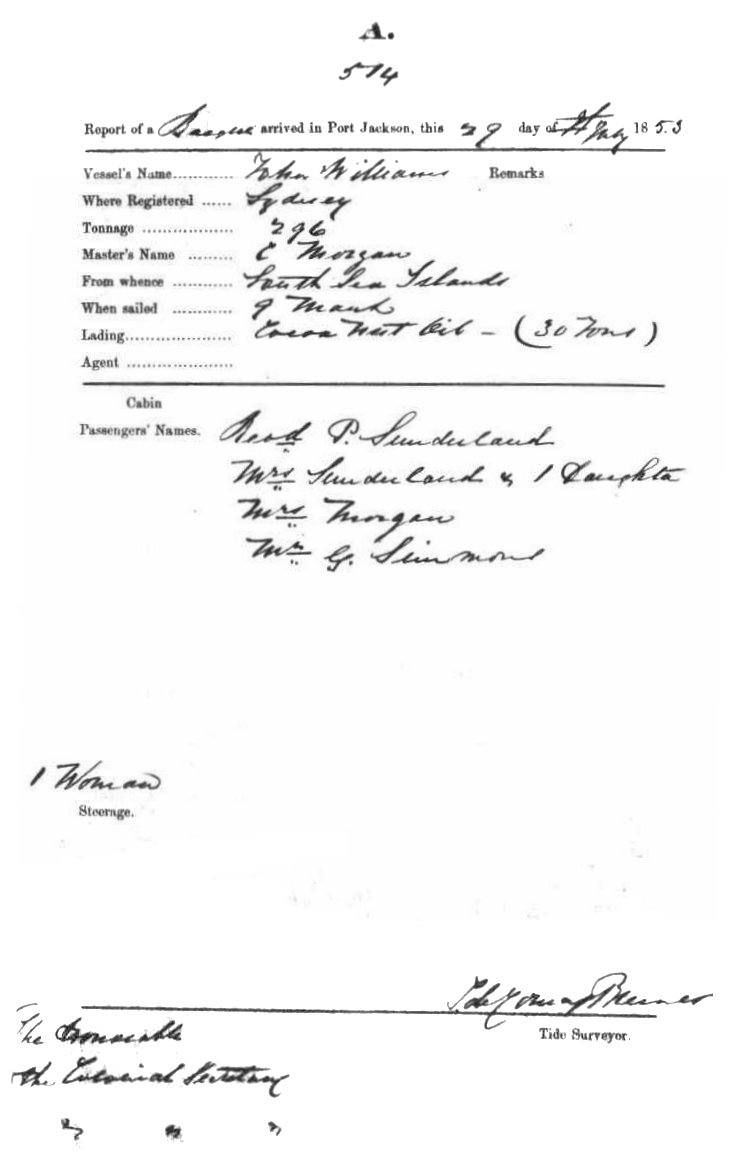 A.
514
Report of a Barque arrived in Port Jackson, this 29 day of July 1853
Vessel's Name............ John Williams Remarks
Where Registered ...... Sydney
Tonnage .................. 296
Master's Name ......... C Morgan
From whence ............ South Sea Islands
When sailed ............ 9 March
Lading..................... Cocoa Nut Oil – (30 Tons)
Agent .....................
Cabin
Passengers' Names. Revd P. Sunderland
Mrs Sunderland & 1 Daughter
Mrs Morgan
Mr G. Simmons
1 Woman
Steerage.
Tide Surveyor.
The Honorable
the Colonial Secretary